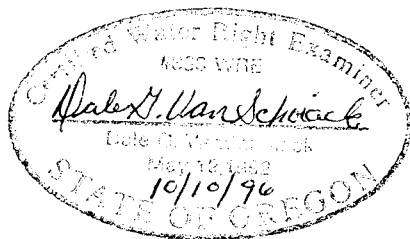 Certified Water Right Examiner
WRE
Dale G. Van Schoiack
Dale G.
May 19,
10/10/96
STATE OF OREGON